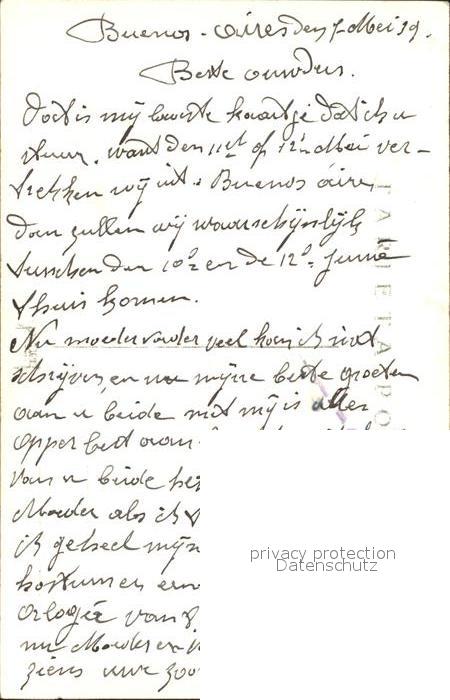 Buenos-Aires den 7 Mei 39.
Beste ouders.
Dit is mijn laatste kaartje dat ik u
stuur. want den 11et of 12n Mei ver-
trekken wij uit. Buenos aires
dan zullen wij waarschijnlijk
tusschen den 10e en de 12e Junie
thuis komen.
Nu moeder vader veel kan ik niet
schrijven, en nu mijne beste groeten
aan u beide met mij is alles
opper best
van u beide
Moeder als ik
ik geheel mijn
kostumen
Orlogie van
nu Moeder en
ziens uwe zoo
TARJETA PO
privacy protection
Datenschutz